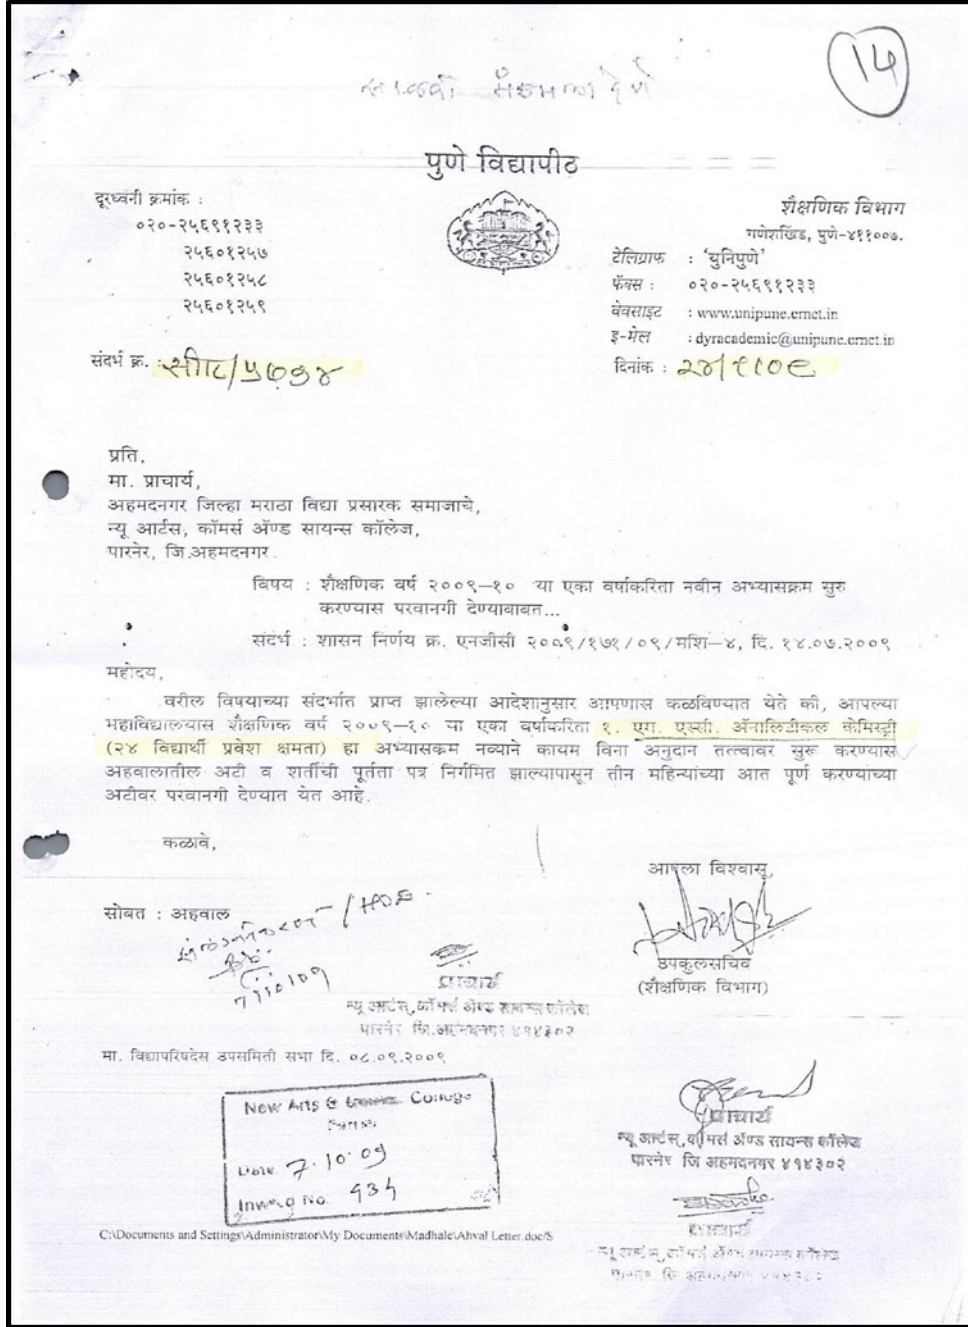 १५
पुणे विद्यापीठ
दूरध्वनी क्रमांक :
०२०-२५६९१२३३
२५६०१२५७
२५६०१२५८
२५६०१२५९
शैक्षणिक विभाग
गणेशखिंड, पुणे-४११००७.
टेलिग्राफ : 'युनिपुणे'
फॅक्स : ०२०-२५६९१२३३
वेबसाइट : www.unipune.ernet.in
इ-मेल : dyracademic@unipune.ernet.in
संदर्भ क्र. :
दिनांक : २४/९/०९
प्रति,
मा. प्राचार्य,
अहमदनगर जिल्हा मराठा विद्या प्रसारक समाजाचे,
न्यू आर्टस, कॉमर्स ॲण्ड सायन्स कॉलेज,
पारनेर, जि.अहमदनगर.
विषय : शैक्षणिक वर्ष २००९—१० या एका वर्षाकरिता नवीन अभ्यासक्रम सुरु
करण्यास परवानगी देण्याबाबत...
संदर्भ : शासन निर्णय क्र. एनजीसी २००९/१७१/०९/मशि—४, दि. १४.०७.२००९
महोदय,
वरील विषयाच्या संदर्भात प्राप्त झालेल्या आदेशानुसार आपणास कळविण्यात येते की, आपल्या
महाविद्यालयास शैक्षणिक वर्ष २००९—१० या एका वर्षाकरिता १. एम. एस्सी. ॲनालिटीकल केमिस्ट्री
(२४ विद्यार्थी प्रवेश क्षमता) हा अभ्यासक्रम नव्याने कायम विना अनुदान तत्त्वावर सुरू करण्यास
अहवालातील अटी व शर्तीची पूर्तता पत्र निर्गमित झाल्यापासून तीन महिन्यांच्या आत पूर्ण करण्याच्या
अटीवर परवानगी देण्यात येत आहे.
कळावे,
आपला विश्वासू,
सोबत : अहवाल
उपकुलसचिव
(शैक्षणिक विभाग)
प्राचार्य
न्यू आर्टस्, कॉमर्स ॲण्ड सायन्स कॉलेज
पारनेर जि.अहमदनगर ४१४३०२
मा. विद्यापरिषदेस उपसमिती सभा दि. ०८.०९.२००९
New Arts &
Date 7.10.09
Inward No. 934
प्राचार्य
न्यू आर्टस्, कॉमर्स ॲण्ड सायन्स कॉलेज
पारनेर जि अहमदनगर ४१४३०२
C:\Documents and Settings\Administrator\My Documents\Madhale\Ahval Letter.doc/S
प्राचार्य